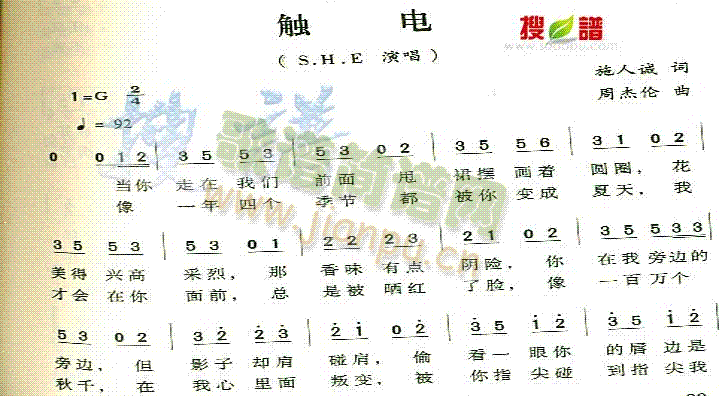 触 电
搜谱
www.sooopu.com
( S.H.E 演唱 )
施人诚 词
周杰伦 曲
1=G 2/4
♩ = 92
歌谱简谱网
www.jianpu.cn
0 0 1 2 | 3 5 5 3 | 5 3 0 2 | 3 5 5 6 | 3 1 0 2 |
当你 走在 我们 前面 甩 裙摆 画着 圆圈, 花
像 一年 四个 季节 都 被你 变成 夏天, 我
3 5 5 3 | 5 3 0 1 | 2 2 2 3 | 2 1 0 2 | 3 5 5 3 3 |
美得 兴高 采烈, 那 香味 有点 阴险, 你 在我 旁边的
才会 在你 面前, 总 是被 晒红 了脸, 像 一百 万个
5 3 0 2 | 3 2̇ 2̇ 3̇ | 2̇ 1̇ 0 2̇ | 3 5 1̇ 2̇ | 3 5 1̇ 2̇
旁边, 但 影子 却肩 碰肩, 偷 看一 眼你 的唇 边是
秋千, 在 我心 里面 叛变, 被 你指 尖碰 到指 尖我